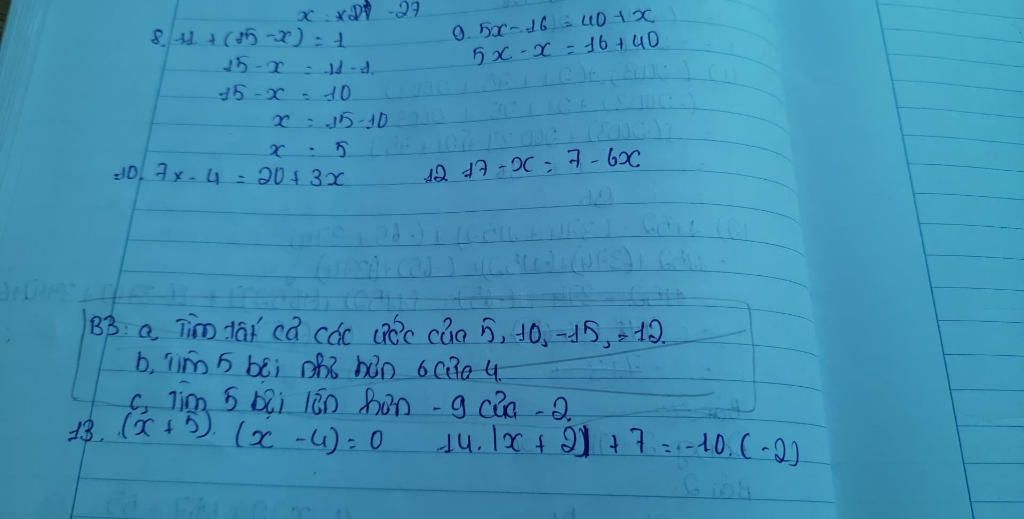 8. 11 + (15 - x) = 1
15 - x = 11 - 1
15 - x = 10
x = 15 - 10
x = 5
9. 5x - 16 = 40 + x
5x - x = 16 + 40
10. 7x - 4 = 20 + 3x
12 17 - x = 7 - 6x
B3: a, Tìm tất cả các ước của 5, 10, -15, -12.
b, Tìm 5 bội nhỏ hơn 6 của 4.
c, Tìm 5 bội lớn hơn -9 của -2.
13. (x + 5). (x - 4) = 0
14. |x + 2| + 7 = -10. (-2)